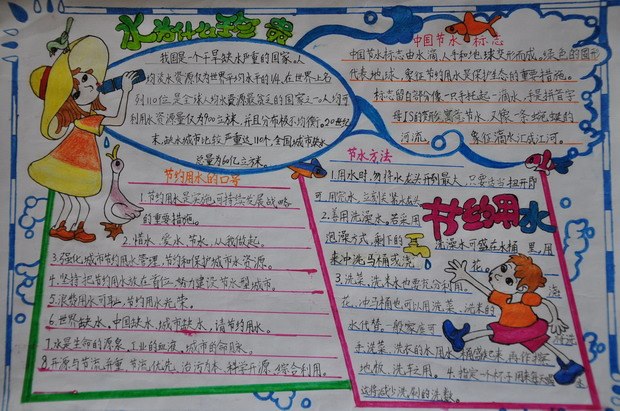 水为什么珍贵
我国是一个干旱缺水严重的国家。人
均淡水资源仅为世界平均水平的1/4,在世界上名
列110位,是全球人均水资源最贫乏的国家之一。人均可
利用水资源量仅为900立方米,并且分布极不均衡。20世纪
末,缺水城市比较严重达110个,全国城市缺水
总量为60亿立方米。
中国节水标志
中国节水标志由水滴、人手和地球变形而成。绿色的圆形
代表地球,象征节约用水是保护生态的重要措施。
标志留白部分像一只手托起一滴水,手是拼音字
母JS的变形,寓意节水,又像一条蜿蜒的
河流,象征滴水汇成江河。
节约用水的口号
1.节约用水是实施可持续发展战略
的重要措施。
2.惜水、爱水、节水,从我做起。
3.强化城市节约用水管理,节约和保护城市水资源。
4.坚持把节约用水放在首位,努力建设节水型城市。
5.浪费用水可耻,节约用水光荣。
6.世界缺水、中国缺水、城市缺水,请节约用水。
7.水是生命的源泉、工业的血液、城市的命脉。
8.开源与节流并重,节流优先、治污为本、科学开源、综合利用。
节水方法
1.用水时,勿将水龙头开到最大,只要适当扭开即
可,用完水,立刻关紧水龙头
节约用水
2.善用洗澡水。若采用
泡澡方式,剩下的
洗澡水可盛在水桶里,用
来冲洗马桶或浇花。
3.洗菜、洗米水也要充分利用,浇
花、冲马桶也可以用洗菜、洗米的
水代替。一般家庭可
将洗菜、洗米的水用水桶盛起来,再作擦
地板、洗手之用。